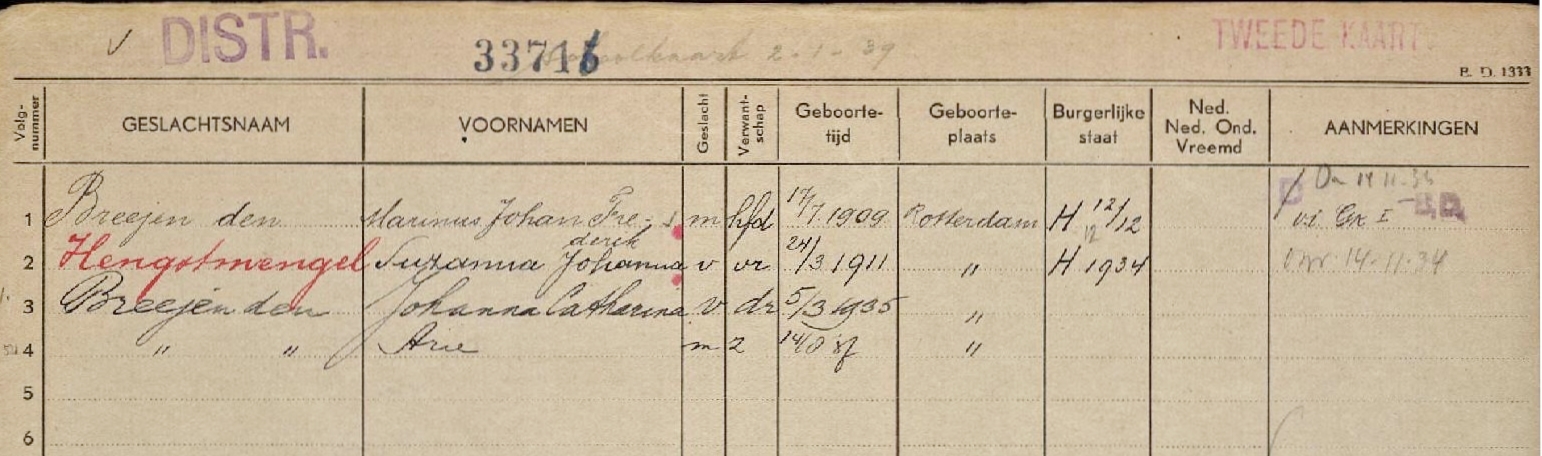 √ DISTR. 33716 2-1-39 TWEEDE KAART.
B. D. 1333
Volg-nummer GESLACHTSNAAM VOORNAMEN Geslacht Verwant-schap Geboorte-tijd Geboorte-plaats Burgerlijke staat Ned. Ned. Ond. Vreemd AANMERKINGEN
1 Breejen den Marinus Johan Fre- m hfd 17/7 1909 Rotterdam H 12/12 B.D.
derik
2 Hengstmengel Suzanna Johanna v vr 24/3 1911 " H 1934 14-11-34
3 Breejen den Johanna Catharina v dr 5/3 1935 "
4 " " Arie m z "
5
6